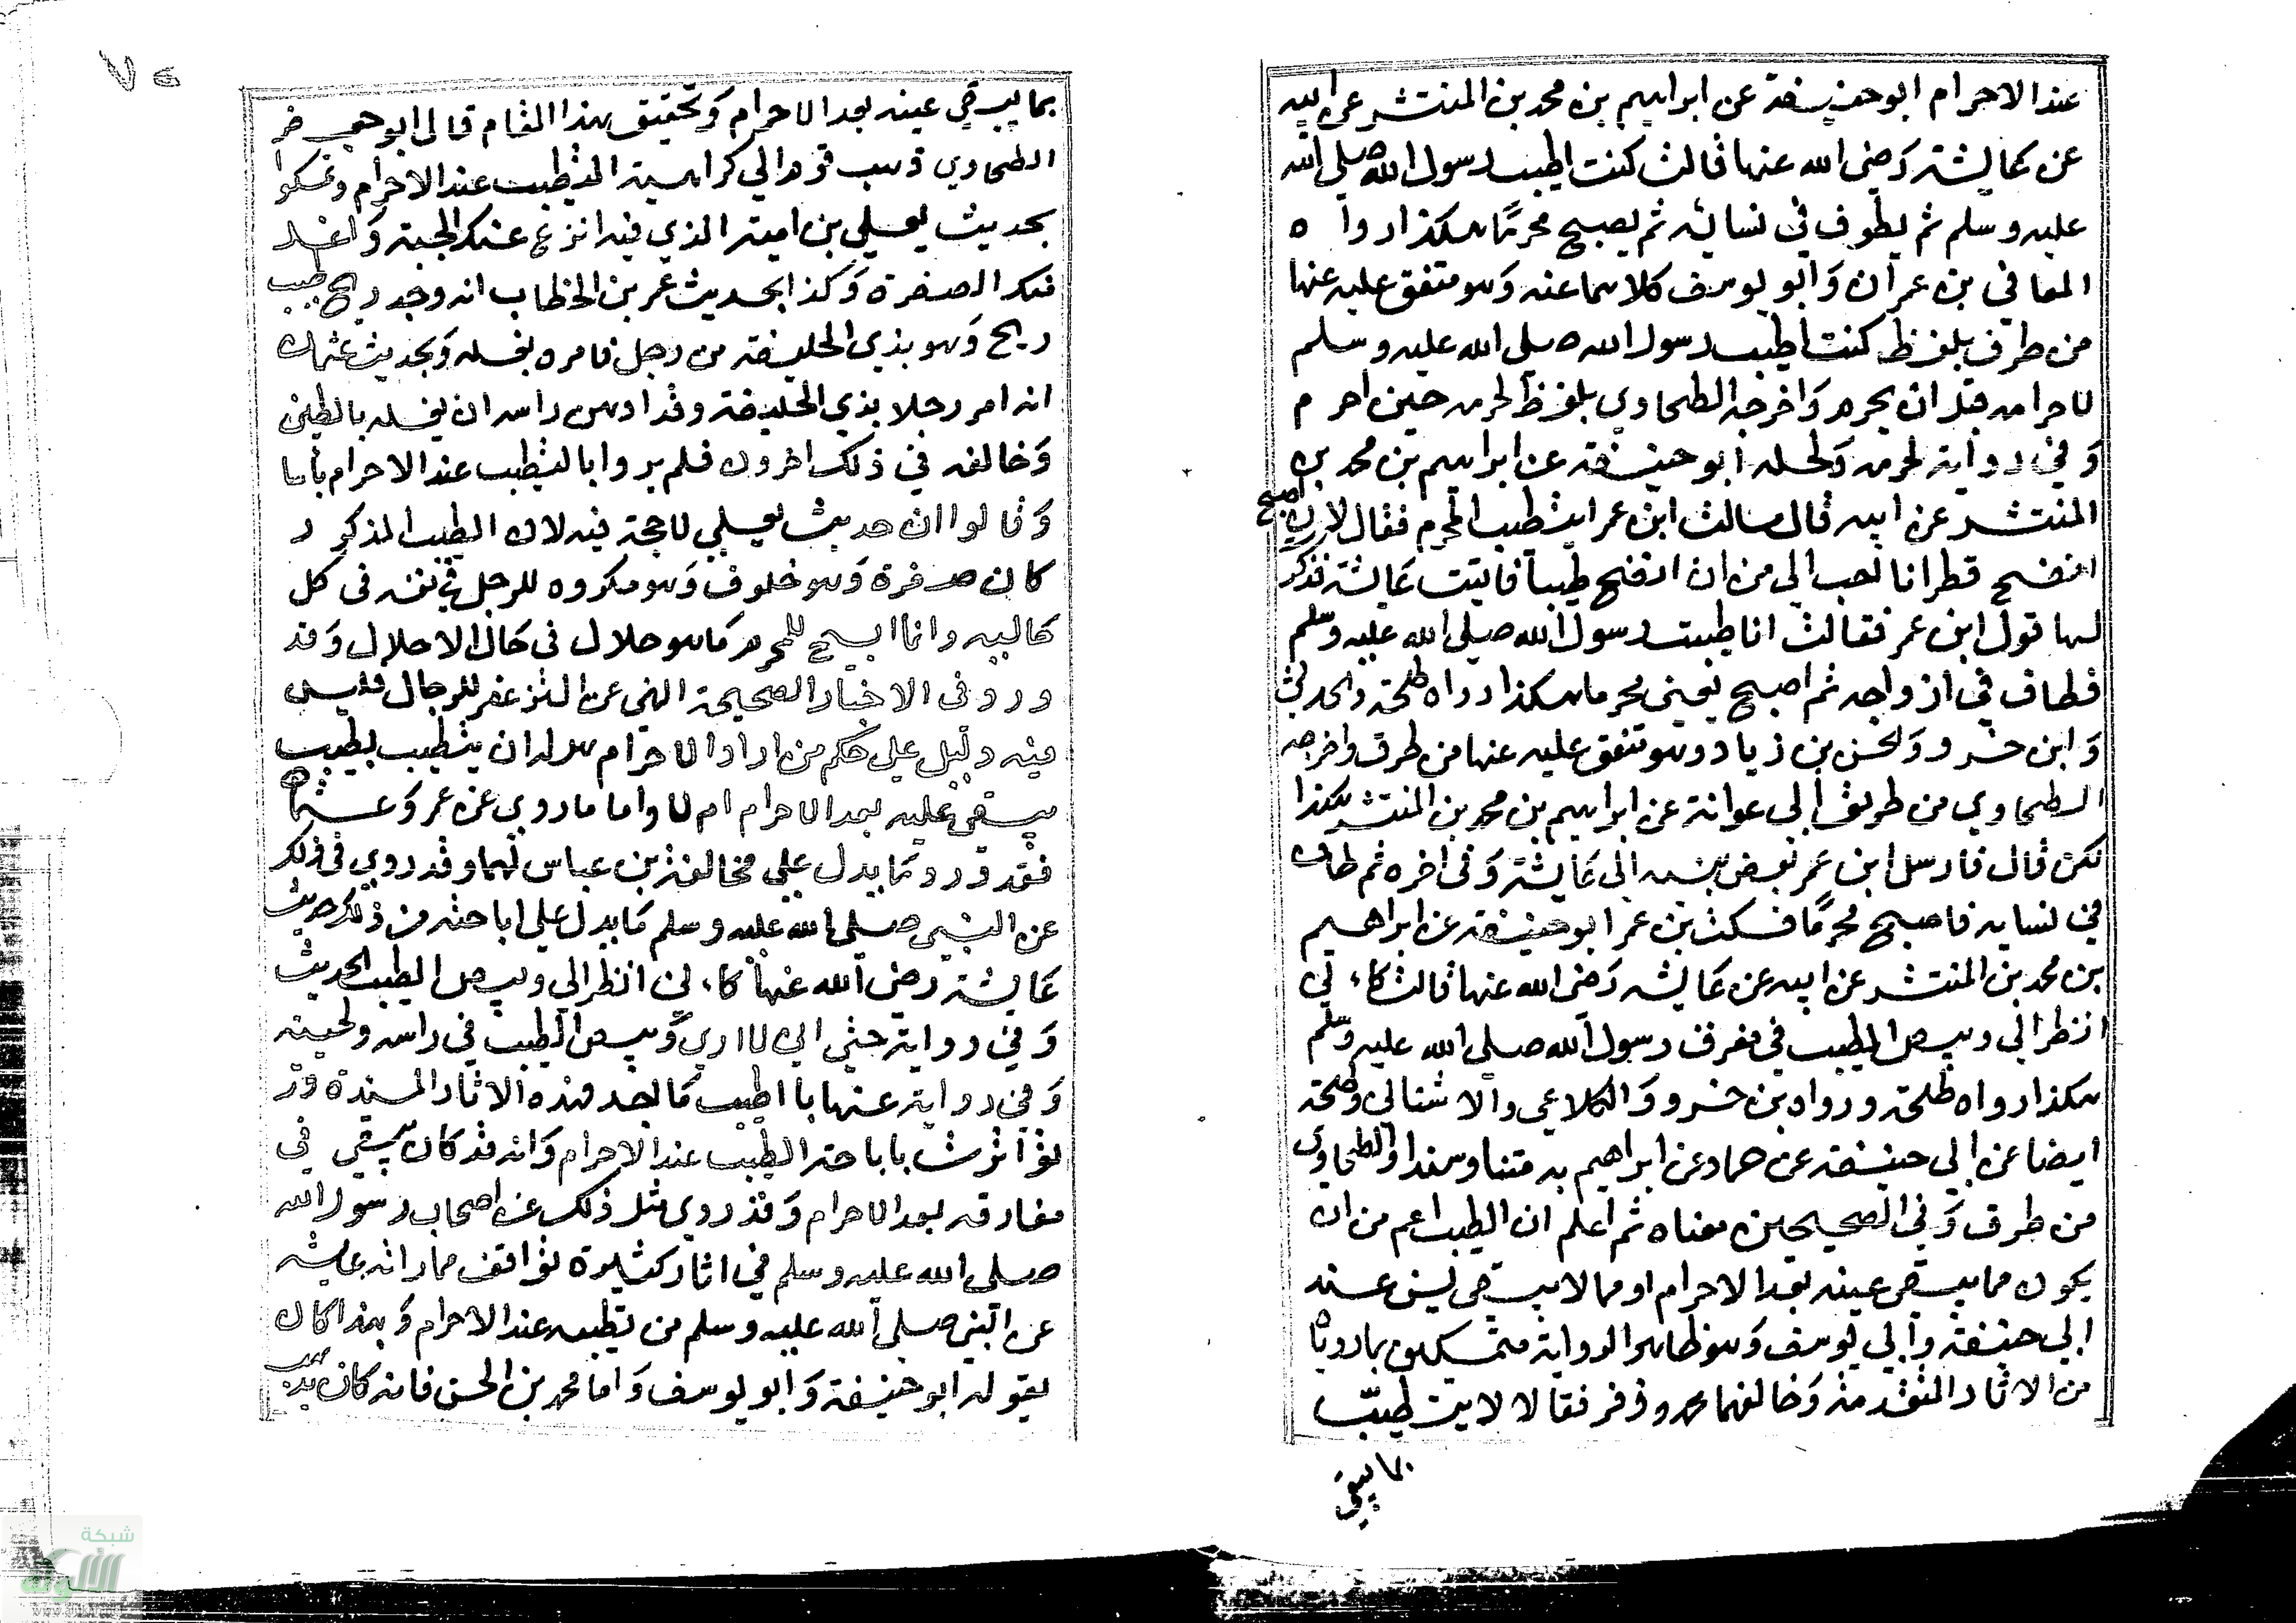 عند الاحرام ابو حنيفة عن ابراهيم بن محمد بن المنتشر عن ابيه
عن عايشة رضى الله عنها قالت كنت اطيب رسول الله صلى الله
عليه وسلم ثم يطوف في نسائه ثم يصبح محرمًا هكذا رواه
المعافي بن عمران وَابو يوسف كلاهما عنه وَهو متفق عليه عنها
من طرق بلفظ كنت اطيب رسول الله صلى الله عليه وسلم
لاحرامه قبل ان يحرم وَاخرجه الطحاوي بلفظ لحرمه حين احرم
وَفي رواية لحرمه وَلحله ابو حنيفة عن ابراهيم بن محمد بن
المنتشر عن ابيه قال سالت ابن عمر ايتطيب المحرم فقال لان اصبح
انضح قطرانا احب الي من ان انضح طيبا فاتيت عَايشة فذكر
لها قول ابن عمر فقالت انا طيبت رسول الله صلى الله عليه وسلم
فطاف في ازواجه ثم اصبح يعني محرما هكذا رواه طلحة
وَابن خسرو وَالحسن بن زياد وهو متفق عليه عنها من طرق واخرجه
الطحاوي من طريق ابي عوانة عن ابراهيم بن محمد بن المنتشر هكذا
لكن قال فارسل ابن عمر بعض بنيه الى عَايشة وَفى اخره ثم طاف
في نسايه فاصبح محرمًا فسكت بن عمر ابو حنيفة عن ابراهيم
بن محمد بن المنتشر عن ابيه عن عَايشه رَضى الله عنها قالت كاني
انظر الى وبيص الطيب في مفرق رسول الله صلى الله عليه وسلم
هكذا رواه طلحة ورواه بن خسرو وَالكلاعي والاشناني وطلحة
ايضا عن ابي حنيفة عن حماد عن ابراهيم به متنا وسندا والطحاوي
من طرق وَفي الصحيحين معناه ثم اعلم ان الطيب اعم من ان
يكون مما يبقى عينه بعد الاحرام او مما لا يبقى ليس عند
ابي حنيفة وأبي يوسف وَهو ظاهر الرواية متمسكين بما روينا
من الاثار المتقدمة وَخالفهما محمد وزفر فقالا لا يتطيب
بما يبقى
بما يبقي عينه بعد الاحرام وَتحقيق هذا المقام قال ابو جعفر
الطحاوي ذهب قوم الي كراهية التطيب عند الاحرام وتمسكوا
بحديث يعلي بن امية الذي فيه انزع عنك الجبة وَاغسل
عنك الصفرة وَكذا بحديث عمر بن الخطاب انه وجد ريح طيب
ريح وَهو بذي الحليفة من رجل فامره بغسله وَبحديث عثمان
انه امر رجلا بذي الحليفة وقد ادهن راسه ان يغسله بالطين
وَخالفه في ذلك اخرون فلم يروا بالتطيب عند الاحرام باسا
وَقالوا ان حديث يعلي لا حجة فيه لان الطيب المذكور
كان صفرة وَهو خلوف وَهو مكروه للرجل في نفسه في كل
حاليه وانما ابيح للمحرم مَا هو حلال في حَال الاحلال وَقد
ورد في الاخبار الصحيحة النهي عن التزعفر للرجال فليس
فيه دليل على حكم من اراد الاحرام هل له ان يتطيب بطيب
يبقى عليه بعد الاحرام ام لا واما ما روي عن عمر وَعثمان
فقد ورد مَا يدل علي مخالفة بن عباس لهما وقد روي في ذلك
عن النبي صلى الله عليه وسلم مَا يدل علي اباحته من ذلك حديث
عَايشة رضى الله عنها كاني انظر الي وبيص الطيب الحديث
وَفي رواية حتى اني لاارى وَبيص الطيب في راسه ولحيته
وَفي رواية عنها با اطيب مَا اجد فهذه الاثار المسندة قد
تواترت باباحة الطيب عند الاحرام وَانه قد كان يبقي في
مفارقه بعد الاحرام وَقد روي مثل ذلك عن اصحاب رسول الله
صلى الله عليه وسلم في اثار كثيرة توافق مما راته عايشة
عن النبي صلى الله عليه وسلم من تطيبه عند الاحرام وَبهذا كان
يقول ابو حنيفة وَابو يوسف وَاما محمد بن الحسن فانه كان يذهب
شبكة
الألوكة